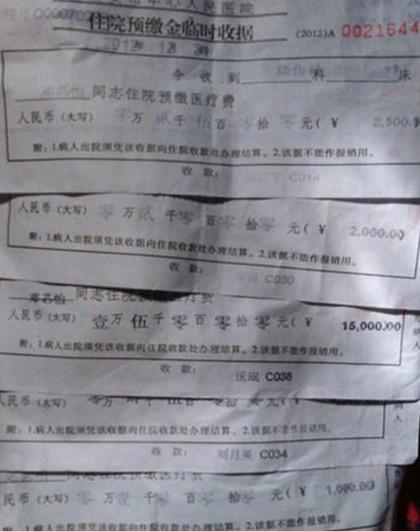 中心人民医院
住院预缴金临时收据
(2012)A 0021644
2012年 12
今收到 科 床
同志住院预缴医疗费
人民币(大写) 零万 贰千 伍百 零拾 零元(¥ 2,500.
附:1.病人出院须凭该收据向住院收款处办理结算。2.该据不能作报销用。
收款: C014
人民币(大写) 零万 贰千 零百 零拾 零元(¥ 2,000.00
附:1.病人出院须凭该收据向住院收款处办理结算。2.该据不能作报销用。
收款: C030
同志住院预缴医疗费
人民币(大写) 壹万 伍千 零百 零拾 零元(¥ 15,000.00
附:1.病人出院须凭该收据向住院收款处办理结算。2.该据不能作报销用。
收款: 匡珉 C038
人民币(大写)
附:1.病人出院须凭该收据向住院收款处办理结算。2.该据不能作报销用。
收款: 刘月英 C034
同志住院预缴医疗费
人民币(大写) 零万 壹千 零百 零拾 零元(¥ 1,000.00